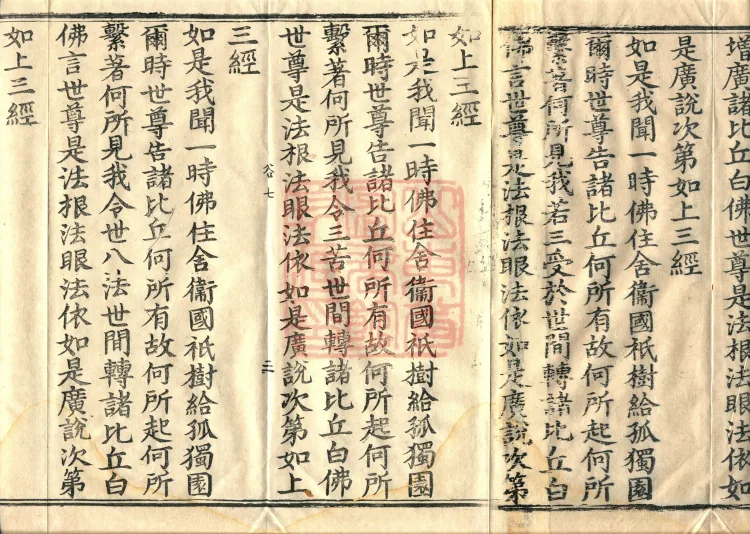 增廣諸比丘白佛世尊是法根法眼法依如
是廣說次第如上三經
如是我聞一時佛住舍衞國祇樹給孤獨園
爾時世尊告諸比丘何所有故何所起何所
繫著何所見我若三受於世間轉諸比丘白
佛言世尊是法根法眼法依如是廣說次第
如上三經
如是我聞一時佛住舍衞國祇樹給孤獨園
爾時世尊告諸比丘何所有故何所起何所
繫著何所見我令三苦世間轉諸比丘白佛
世尊是法根法眼法依如是廣說次第如上
三經
如是我聞一時佛住舍衞國祇樹給孤獨園
爾時世尊告諸比丘何所有故何所起何所
繫著何所見我令世八法世間轉諸比丘白
佛言世尊是法根法眼法依如是廣說次第
如上三經